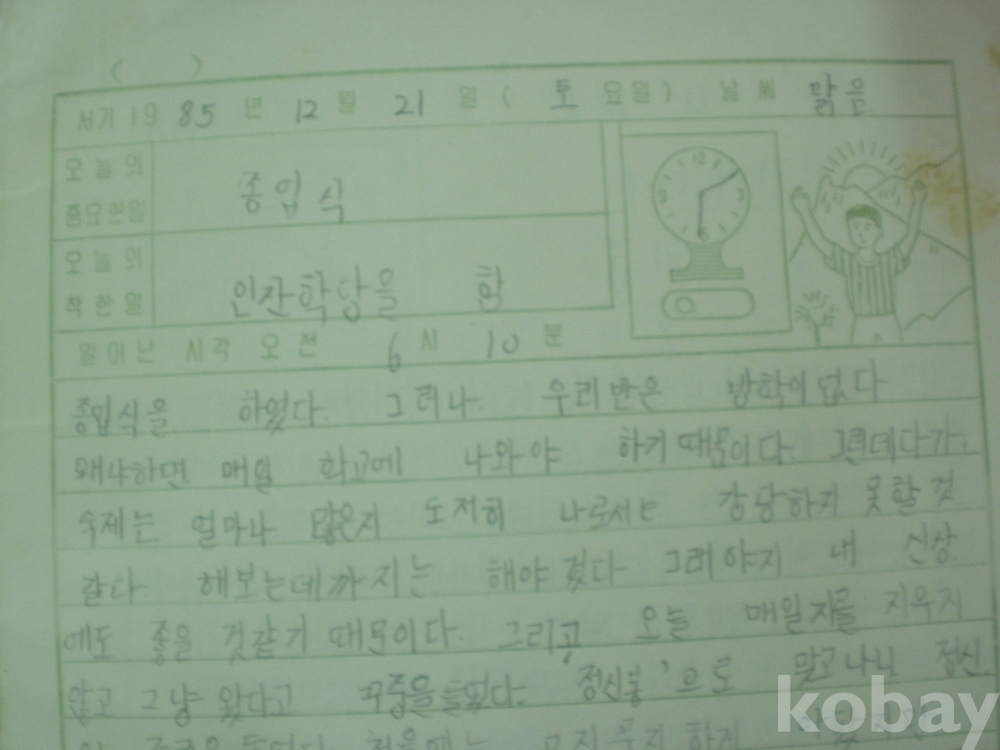 ( )
서기 19 85 년 12 월 21 일 ( 토 요일) 날씨 맑음
오늘의 중요한일 종업식
12 3 6
오늘의 착한일 인잔학당을 함
일어난 시각 오전 6 시 10 분
종업식을 하였다. 그러나. 우리반은 방학이 없다
왜냐하면 매일 학교에 나와야 하기 때문이다. 그런데다가.
숙제는 얼마나 많은지 도저히 나로서는 감당하지 못할 것
같다. 해보는데까지는 해야겠다 그래야지 내 신상.
에도 좋을 것같기 때문이다. 그리고 오늘 매일지를 지우지
않고 그냥 왔다고 꾸중을 들었다. '정신봉'으로 맞고나니 정신
kobay